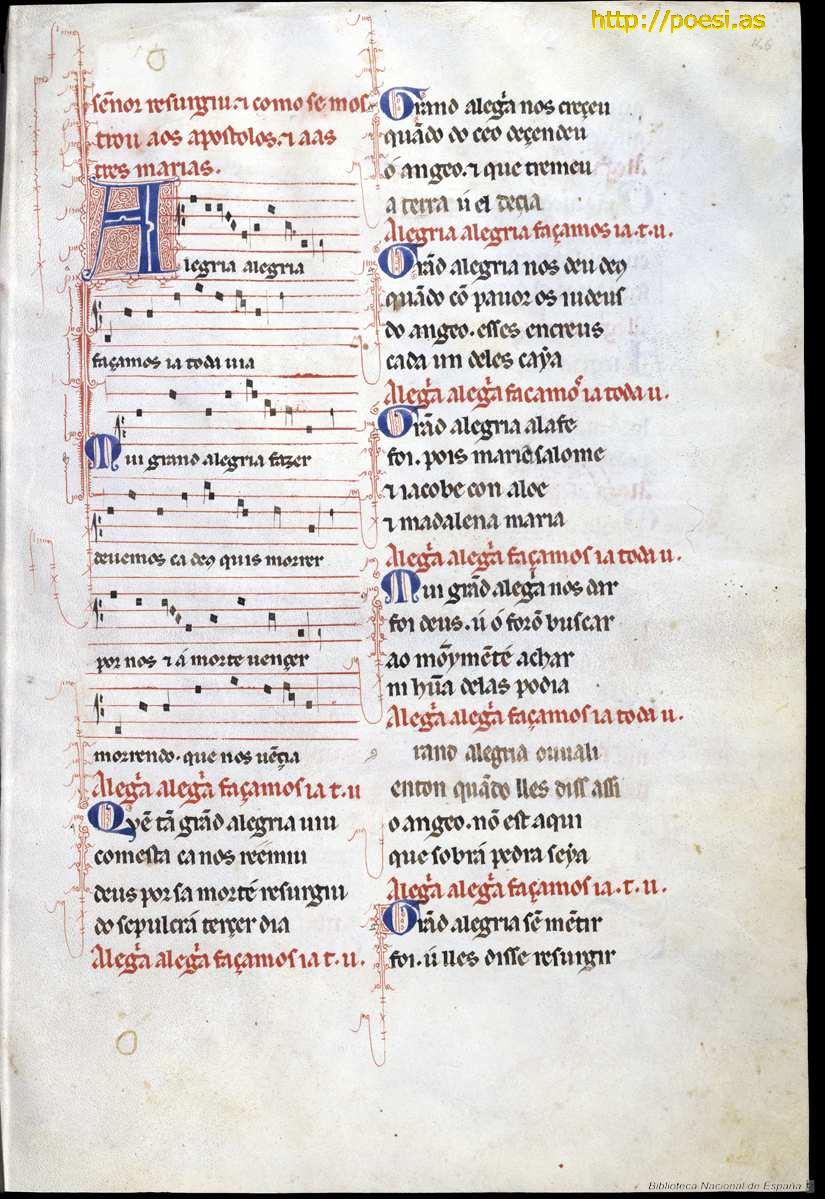 http://poesi.as
146
sẽnor resurgiu. ⁊ como se mos
trou aos apostolos. ⁊ aas
tres marias.
Alegria alegria
façamos ia toda uia
Mui grand alegria fazer
deuemos ca deus quis morrer
por nos ⁊ á morte uençer
morrendo. que nos uẽçia
Alegͣa alegͣa façamos ia t. u
Quẽ tã grãd alegria uiu
comesta ca nos reẽmiu
deus por sa morte resurgiu
do sepulcrá terçer dia
Alegͣa alegͣa façamos ia t. u.
Grand alegͣa nos creçeu
quãdo do ceo deçendeu
ó angeo. ⁊ que tremeu
a terra ú el deçia
Alegria alegria façamos ia. t. u.
Grãd alegria nos deu deus
quãdo cõ pauor os iudeus
do angeo. esses encreus
cada un deles caýa
Alegͣa alegͣa facamos ia toda u.
Grãd alegria alafe
foi. pois maria salome
⁊ iacobe con aloe
⁊ madalena maria
Alegͣa alegͣa façamos ia toda u.
Mui grãd alegͣa nos dar
foi deus. ú ó forõ buscar
ao mõymẽte achar
ni hũa delas podia
Alegͣa alegͣa façamos ia toda u.
rand alegria ouuali
enton quãdo lles diss assi
o angeo. nõ est aqui
que sobrá pedra seýa
Alegͣa alegͣa façamos ia. t. u.
Grãd alegria sẽ mẽtir
foi. ú lles disse resurgir
Biblioteca Nacional de España